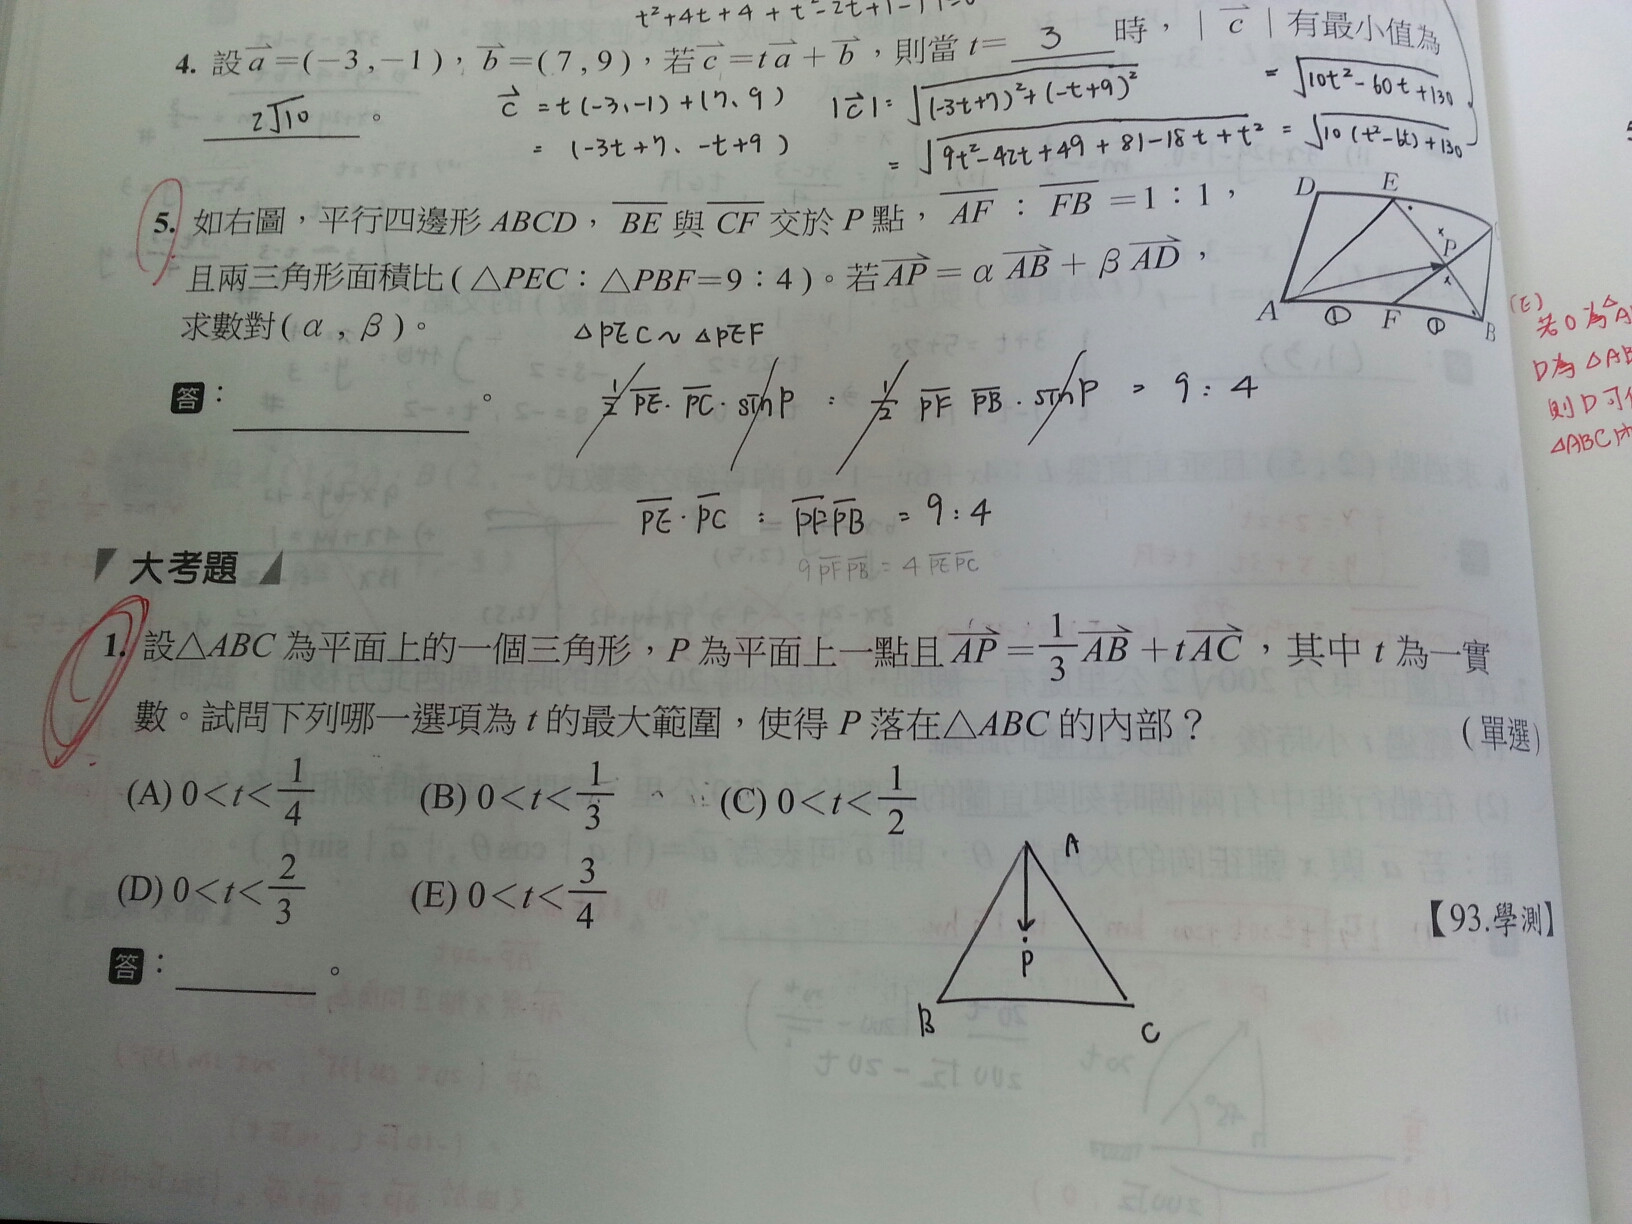 t²+4t+4+t²-2t+1-
4. 設a=(-3,-1),b=(7,9),若c=ta+b,則當t= 3 時,|c|有最小值為
2√10 。
c = t(-3、-1)+(7、9)
= (-3t+7、-t+9)
|c| = √(-3t+7)²+(-t+9)²
= √9t²-42t+49+81-18t+t²
= √10t²-60t+130
= √10(t²-6t)+130
5. 如右圖,平行四邊形ABCD,BE與CF交於P點,AF:FB=1:1,
且兩三角形面積比(△PEC:△PBF=9:4)。若AP=αAB+βAD,
求數對(α,β)。
D E P A ① F ① B
△PEC~△PEF
答: 。
1/2 PE·PC·sinP : 1/2 PF PB·sinP = 9:4
PE·PC : PF PB = 9:4
9PF PB = 4PE PC
(E)
若O為△A
D為△AB
則D可
△ABC
大考題
1. 設△ABC為平面上的一個三角形,P為平面上一點且AP=1/3AB+tAC,其中t為一實
數。試問下列哪一選項為t的最大範圍,使得P落在△ABC的內部?
(單選)
(A) 0<t<1/4 (B) 0<t<1/3 (C) 0<t<1/2
(D) 0<t<2/3 (E) 0<t<3/4
【93.學測】
答: 。
A
P
B C